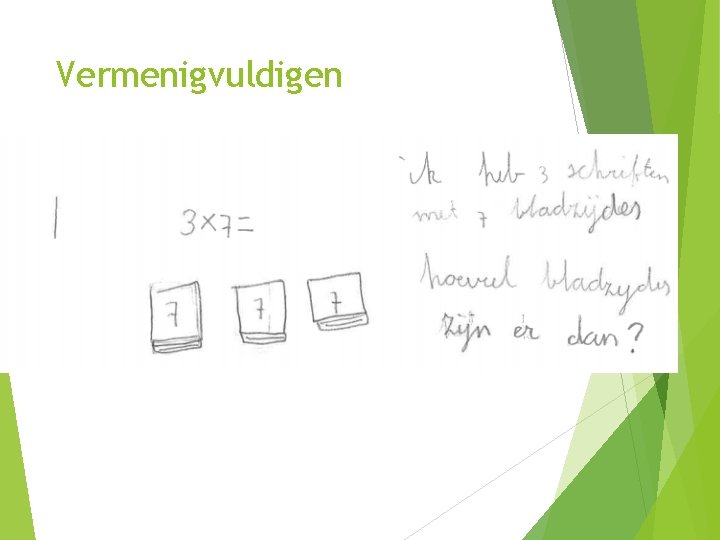 Vermenigvuldigen
1
3 x 7 =
7 7 7
ik heb 3 schriften
met 7 bladzijdes
hoeveel bladzydes
zijn er dan?